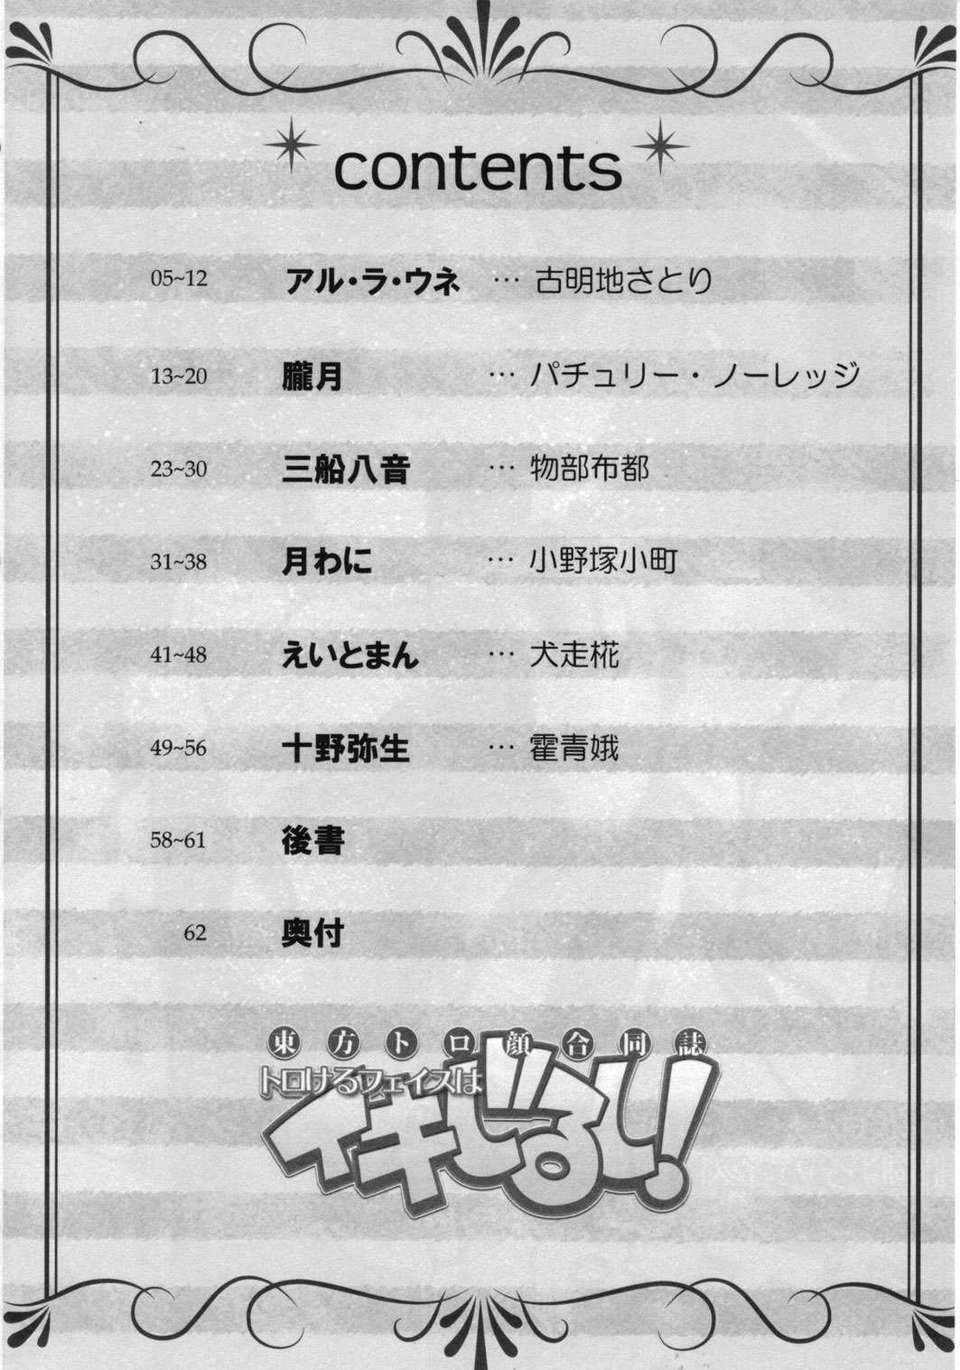 contents
05~12 アル・ラ・ウネ … 古明地さとり
13~20 朧月 … パチュリー・ノーレッジ
23~30 三船八音 … 物部布都
31~38 月わに … 小野塚小町
41~48 えいとまん … 犬走椛
49~56 十野弥生 … 霍青娥
58~61 後書
62 奥付
東方トロ顔合同誌
トロけるフェイスは
イキじるし!